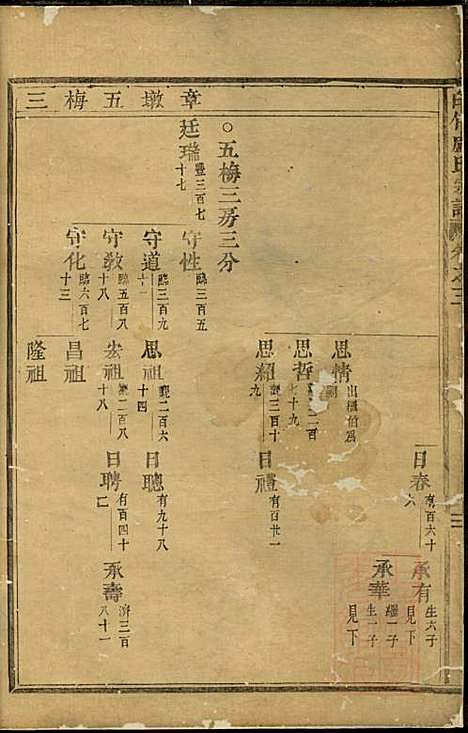 章墩五梅三
。五梅三房三分
廷瑞
豐三百七十七
守性
臨三百五
守道
臨三百九十一
守教
臨五百八十八
守化
臨六百七十三
思情
出繼伯爲
思哲
二百七十九
思紹
三百十九
思祖
觀二百六十四
宏祖
觀二百八十八
昌祖
隆祖
日春
有百六十六
日禮
有百廿一
日聰
有九十八
日聘
有百四十七
承有
生六子見下
承華
繼一子生一子見下
承壽
濟三百八十一